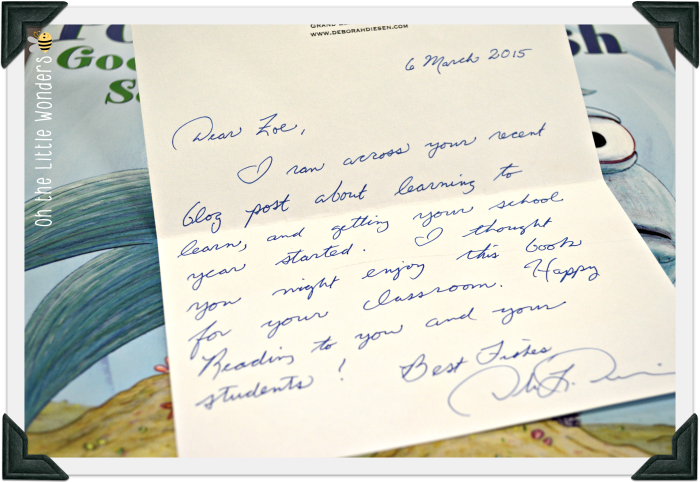 WWW.DEBORAHDIESEN.COM
6 March 2015
Dear Zoe,
I ran across your recent
blog post about learning to
learn, and getting your school
year started. I thought
you might enjoy this book
for your classroom. Happy
Reading to you and your
students! Best Fishes
Oh the Little Wonders